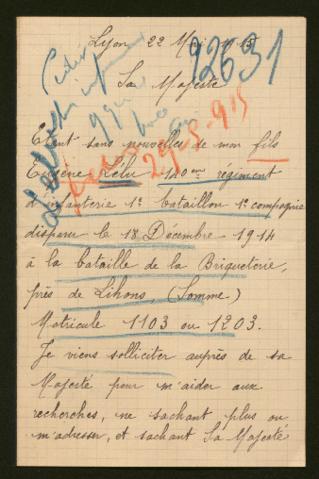 Lyon 22 Mai 1915
22631
Sa Majesté
29-5-915
Etant sans nouvelles de mon fils
Eugène Lélu 140ème régiment
d'infanterie 1e bataillon 1e compagnie
disparu le 18 Décembre 1914
à la bataille de la Briqueterie,
près de Lihons, (Somme)
Matricule 1103 ou 1203.
Je viens solliciter auprès de sa
Majesté pour m'aider aux
recherches, ne sachant plus ou
m'adresser, et sachant Sa Majesté